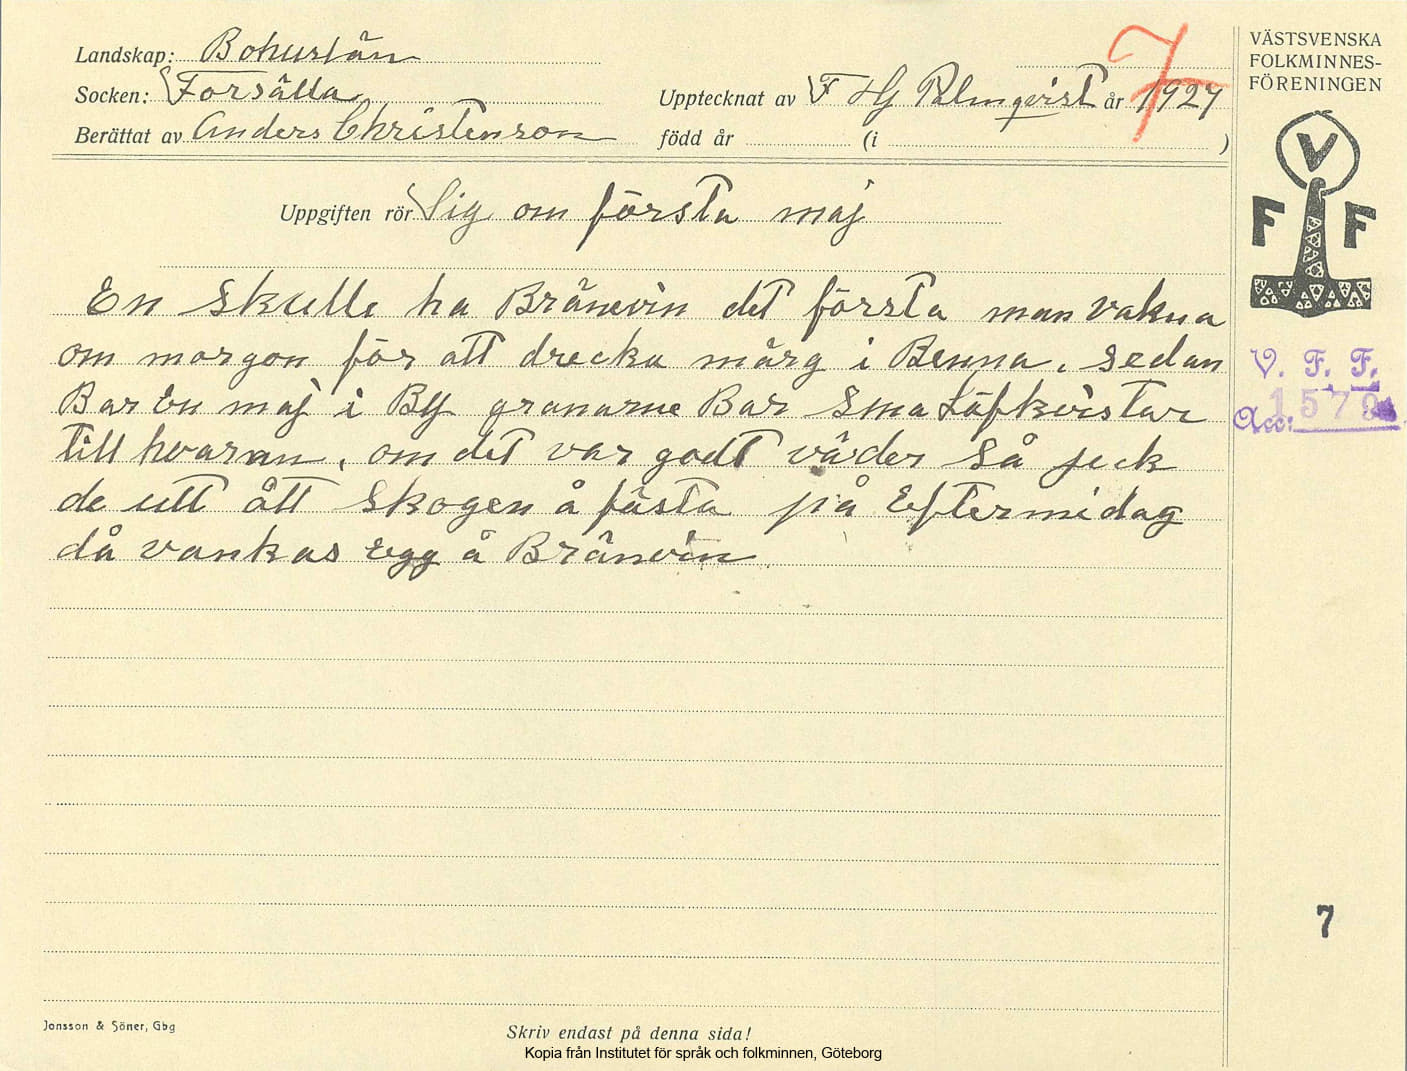 Landskap: Bohuslän
Socken: Forsälla
Berättat av Anders Christenson
Upptecknat av F Hj Palmqvist år 1927
född år (i )
7
VÄSTSVENSKA
FOLKMINNES-
FÖRENINGEN
V
F F
Uppgiften rör Sig om första maj
En skulle ha Bränevin det första man vakna
om morgon för att drecka märg i Benna. sedan
Bar En maj i By granarne Bar sma Löfkvistar
till hvaran. om det var godt väder så jeck
de utt ått skogen å fästa på Eftermidag
då vankas egg å Bränvin
V. F. F.
Acc: 1579
7
Jonsson & Söner, Gbg
Skriv endast på denna sida!
Kopia från Institutet för språk och folkminnen, Göteborg